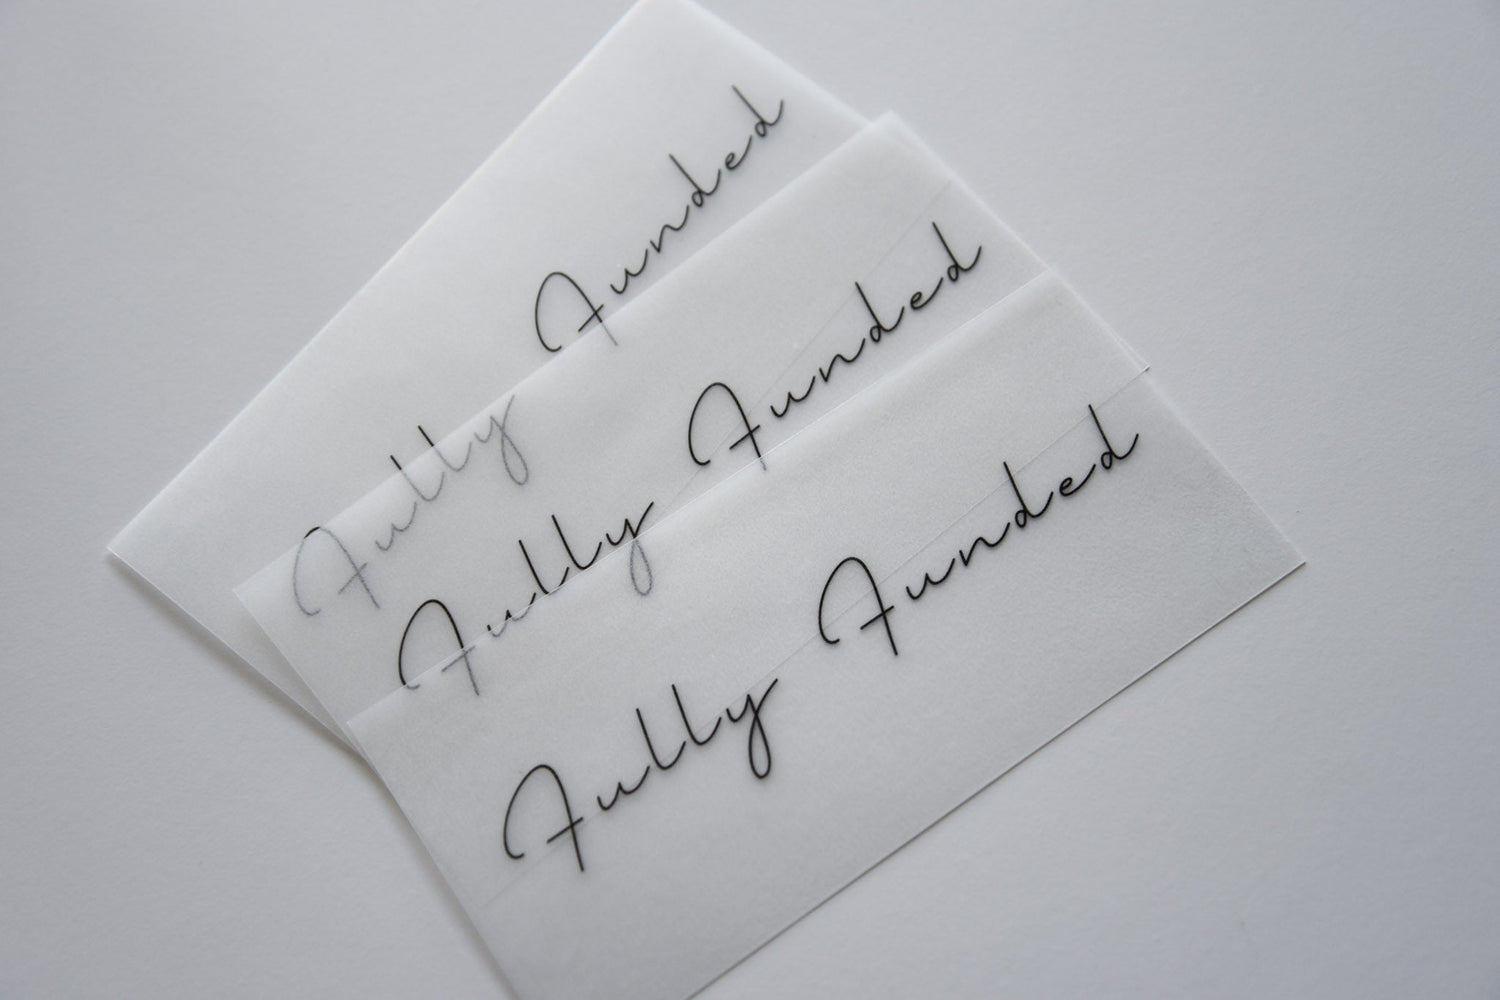 Fully Funded
Fully Funded
Fully Funded